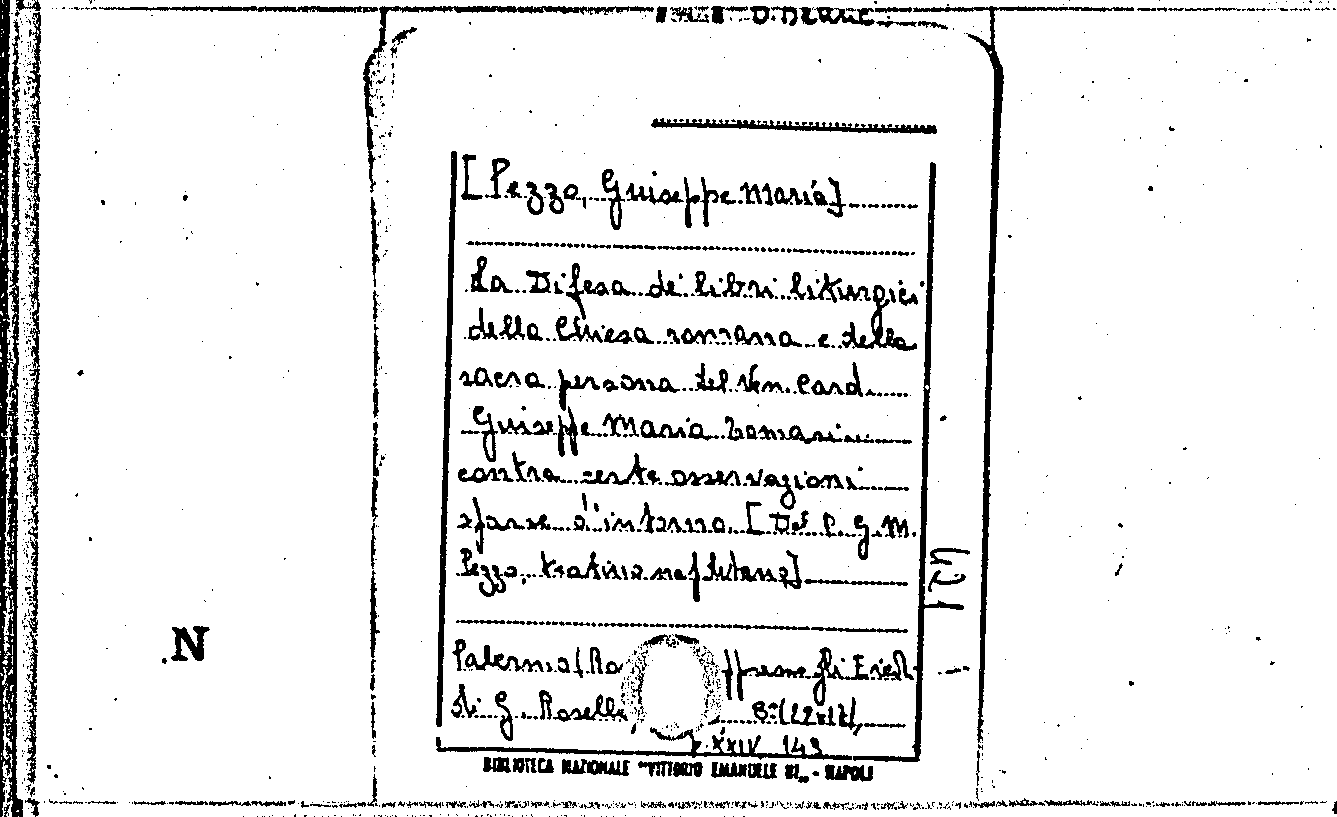 [Pezzo, Giuseppe Maria]
La Difesa de' libri liturgici
della Chiesa romana e della
sacra persona del Ven. Card.
Giuseppe Maria Tomasi
contra certe osservazioni
sparse d'intorno. [Del P. G. M.
Pezzo, teatino napoletano]
Palermo gli Eredi
di G. 8°(22x17),
p. XXIV 143
BIBLIOTECA NAZIONALE "VITTORIO EMANUELE III" - NAPOLI
N